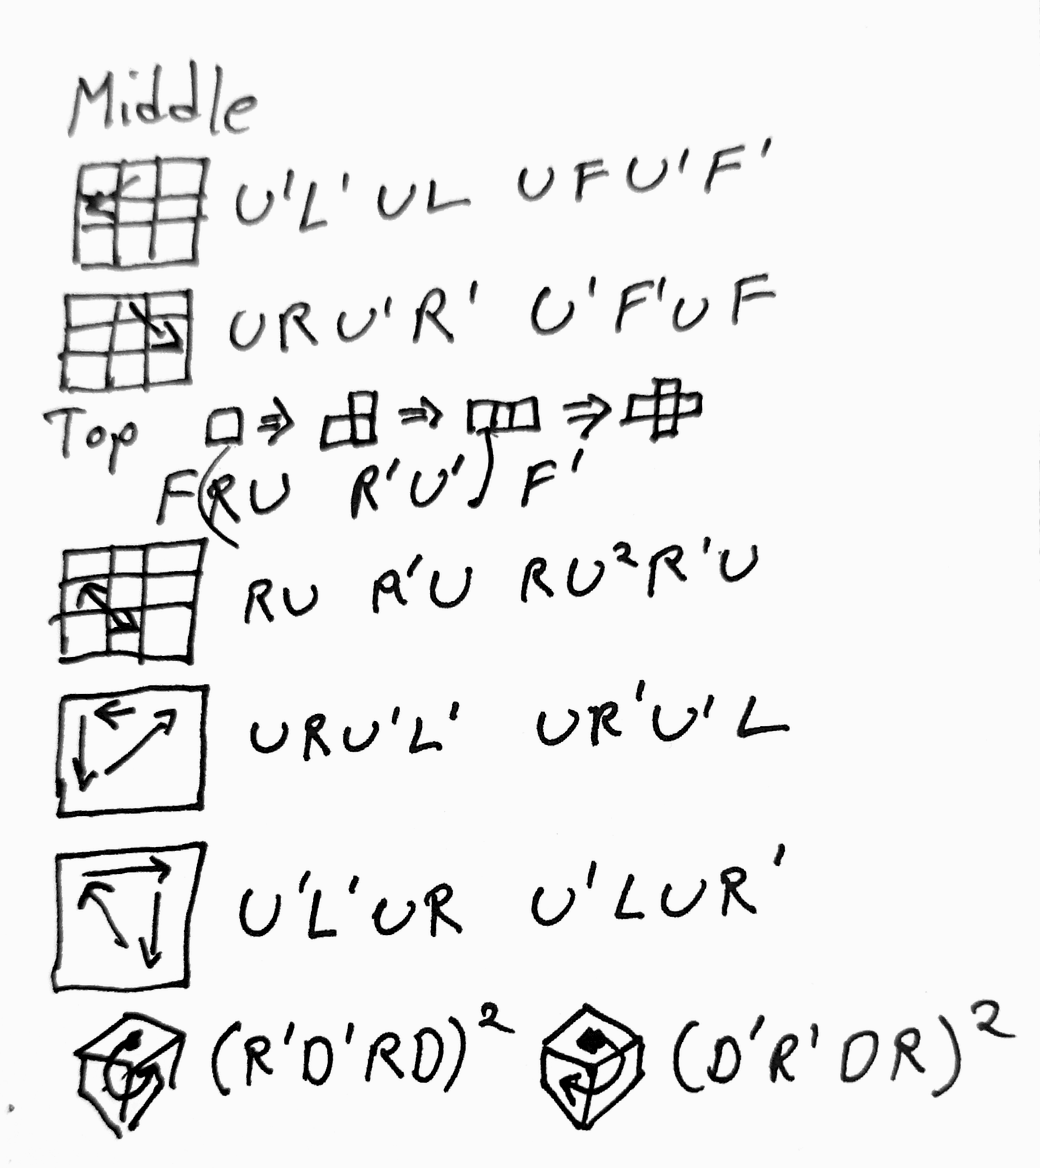 Middle
U'L' UL UFU'F'
URU'R' U'F'UF
Top ⇒ ⇒ ⇒
F(RU R'U') F'
RU R'U RU²R'U
URU'L' UR'U'L
U'L'UR U'LUR'
(R'D'RD)² (D'R'DR)²